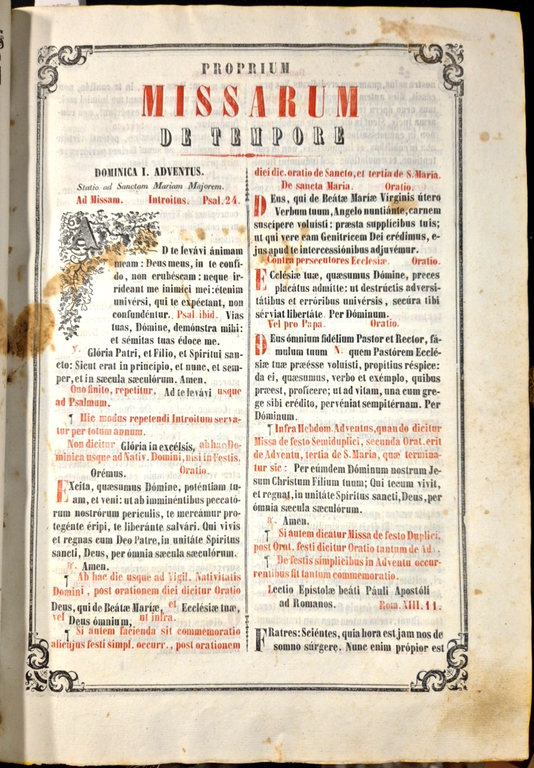 PROPRIUM
MISSARUM
DE TEMPORE
DOMINICA I. ADVENTUS.
Statio ad Sanctam Mariam Majorem.
Ad Missam. Introitus. Psal. 24.
AD te levávi ánimam
meam : Deus meus, in te confi-
do, non erubéscam : neque ir-
rídeant me inimíci mei : étenim
univérsi, qui te expéctant, non
confundéntur. Psal. ibid. Vias
tuas, Dómine, demónstra mihi:
et sémitas tuas édoce me.
℣. Glória Patri, et Fílio, et Spirítui san-
cto: Sicut erat in princípio, et nunc, et sem-
per, et in sæcula sæculórum. Amen.
Quo finito, repetitur, Ad te levávi usque
ad Psalmum.
¶ Hic modus repetendi Introitum serva-
tur per totum annum.
Non dicitur Glória in excélsis, ab hac Do-
minica usque ad Nativ. Domini, nisi in Festis.
Orémus. Oratio.
EXcita, quæsumus Dómine, poténtiam tu-
am, et veni: ut ab imminéntibus peccató-
rum nostrórum perículis, te mereámur pro-
tegénte éripi, te liberánte salvári. Qui vivis
et regnas cum Deo Patre, in unitáte Spíritus
sancti, Deus, per ómnia sæcula sæculórum.
℟. Amen.
¶ Ab hac die usque ad Vigil. Nativitatis
Domini, post orationem diei dicitur Oratio
Deus, qui de Beátæ Maríæ, et Ecclésiæ tuæ,
vel Deus ómnium, ut infra.
¶ Si autem facienda sit commemoratio
alicujus festi simpl. occurr., post orationem
diei dic. oratio de Sancto, et tertia de S. Maria.
De sancta Maria. Oratio.
DEus, qui de Beátæ Maríæ Vírginis útero
Verbum tuum, Angelo nuntiánte, carnem
suscípere voluísti : præsta supplícibus tuis;
ut qui vere eam Genitrícem Dei crédimus, e-
jus apud te intercessiónibus adjuvémur.
Contra persecutores Ecclesiæ. Oratio.
ECclésiæ tuæ, quæsumus Dómine, preces
placátus admítte: ut destrúctis adversi-
tátibus et erróribus univérsis, secúra tibi
sérviat libertáte. Per Dóminum.
Vel pro Papa. Oratio.
DEus ómnium fidélium Pastor et Rector, fá-
mulum tuum N. quem Pastórem Ecclé-
siæ tuæ præésse voluísti, propítius réspice:
da ei, quæsumus, verbo et exémplo, quibus
præest, profícere; ut ad vitam, una cum gre-
ge sibi crédito, pervéniat sempitérnam. Per
Dóminum.
¶ Infra Hebdom. Adventus, quando dicitur
Missa de festo Semiduplici, secunda Orat. erit
de Adventu, tertia de S. Maria, quæ termina-
tur sic : Per eúmdem Dóminum nostrum Je-
sum Christum Fílium tuum; Qui tecum vivit,
et regnat, in unitáte Spíritus sancti, Deus, per
ómnia sæcula sæculórum.
℟. Amen.
¶ Si autem dicatur Missa de festo Duplici,
post Orat. festi dicitur Oratio tantum de Ad.
¶ De festis simplicibus in Adventu occur-
rentibus fit tantum commemoratio.
Lectio Epístolæ beáti Páuli Apostóli
ad Romanos. Rom. XIII. 11.
FRatres: Sciéntes, quia hora est jam nos de
somno súrgere. Nunc enim própior est